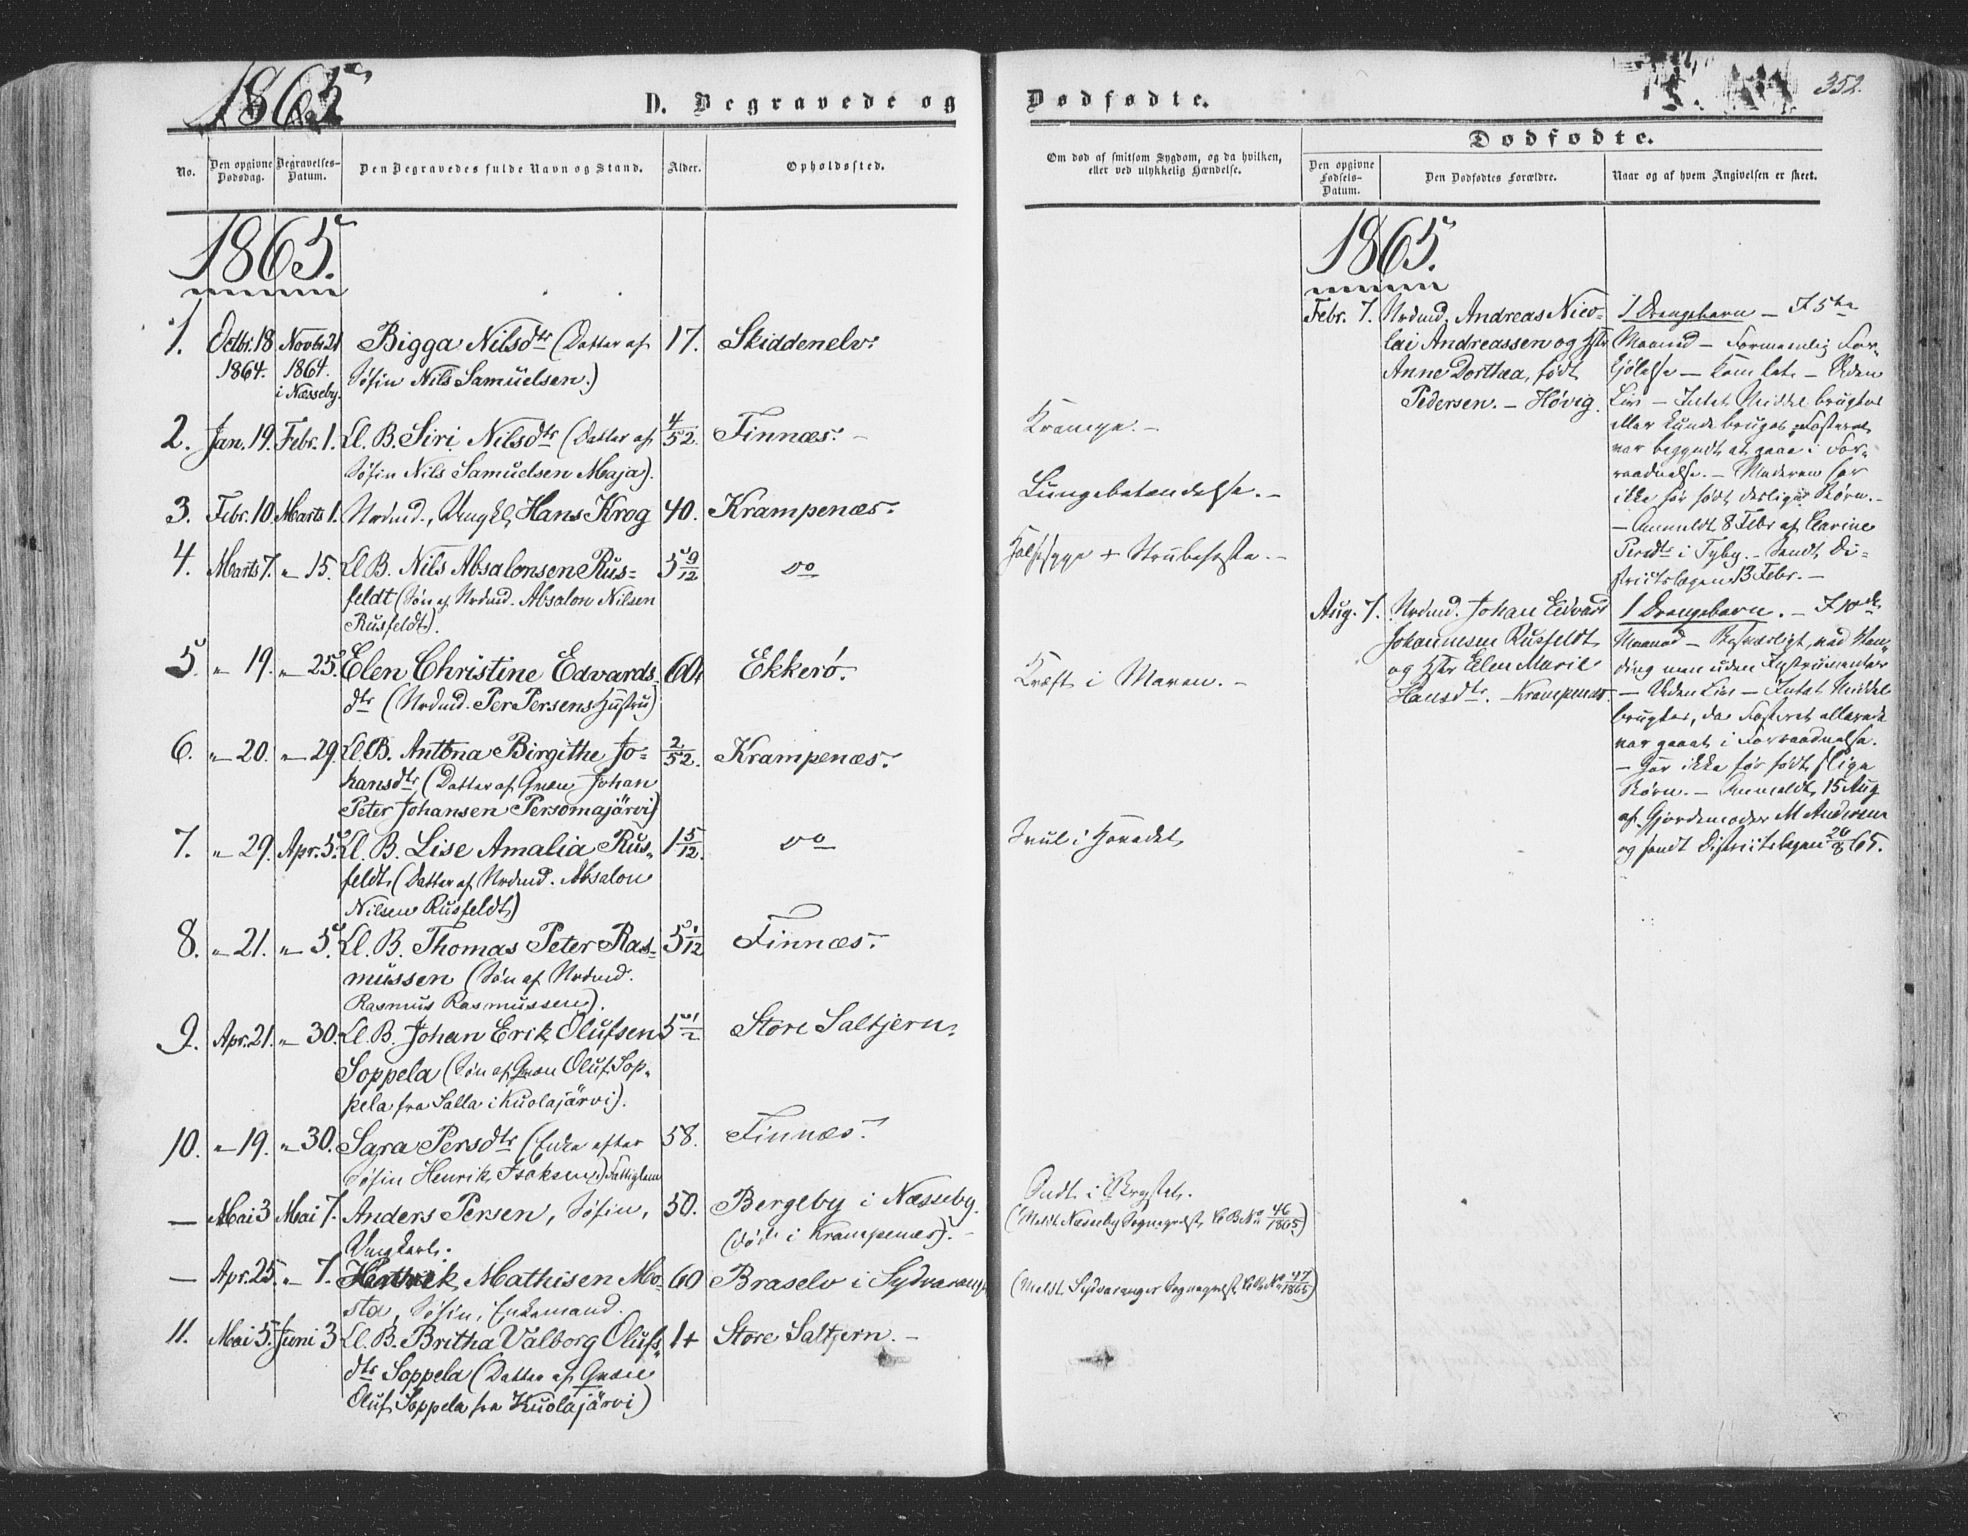 1865
D. Begravede og
Dødfødte.
352.
No.
Den opgivne Dødsdag.
Begravelses-Datum.
Den Begravedes fulde Navn og Stand.
Alder.
Opholdssted.
Om død af smitsom Sygdom, og da hvilken,
eller ved ulykkelig Hændelse.
Dødfødte.
Den opgivne Fødsels-Datum.
Den Dødfødtes Forældre.
Naar og af hvem Angivelsen er skeet.
1865.
1. Octbr. 18 Novbr. 21 Bigga Nilsdtr (Datter af 17. Skiddenelv.
1864. 1864. Søfin Nils Samuelsen.)
i Næsseby.
2. Jan. 19. Febr. 1. Ll. B. Siri Nilsdtr (Datter af 4/52. Finnæs. – Krampe. –
Søfin Nils Samuelsen Maja).
3. Febr. 10. Marts 1. Nrdmd., Ungkl, Hans Krog 40. Krampenæs. Lungebetændelse. –
4. Marts 7. " 15. Ll B. Nils Absalonsen Rus= 5 9/12 do Halssyge + Strubehoste. –
feldt (Søn af Nrdmd. Absalon Nilsen
Rusfeldt).
5. " 19. " 25. Elen Christine Edvards 60. Ekkerö. Kræft i Maven. –
dtr (Nrdmd. Per Persens Hustru)
6. " 20. " 29. Ll. B. Antona Birgithe Jo= 2/52. Krampenæs.
hansdtr (Datter af Qvæn Johan
Peter Johansen Persomajärvi)
7. " 29. Apr. 5. Ll. B. Lise Amalia Rus= 1 5/12. do i Hovedet
feldt (Datter af Nrdmd. Absalon
Nilsen Rusfeldt)
8. " 21. " 5. Ll. B. Thomas Peter Ras= 5 1/12 Finnæs.
mussen (Søn af Nrdmd.
Rasmus Rasmussen).
9. Apr. 21. " 30. Ll. B. Johan Erik Olufsen 5 1/2 Store Saltjern.
Soppela (Søn af Qvæn Oluf Sop=
pela fra Salla i Kuolajärvi).
10. " 19. " 30. Sara Persdtr (Enke efter 58. Finnæs.
Søfin Henrik Isaksen) Fattiglem
— Mai 3 Mai 7. Anders Persen, Søfin, 50. Bergeby i Næsseby. Ondt i Brystet.
Ungkarl. (død i Krampenæs). – (Meldt Næsseby Sognepræst 46/1865)
— Apr. 25. " 7. Henrik Mathisen Mo= 60 Braselv i Sydvaranger (Meldt Sydvaranger Sognepræst 47/1865)
sta, Søfin, Enkemand.
11. Mai 5. Juni 3 Ll. B. Britha Valborg Olufs= 1+ Store Saltjern. –
dtr Soppela (Datter af Qvæn
Oluf Soppela fra Kuolajärvi)
1865.
Febr. 7. Nrdmd. Andreas Nico=
lai Andreassen og Hstr
Anne Dorthea, født
Pedersen. – Høvig.
1 Drengebarn – I 5te
Maaned – Formeentlig For=
– Uden
Liv – Intet Middel brugtes
eller kunde bruges, Fosteret
var begyndt at gaae i For=
raadnelse. – Moderen har
ikke før født deslige Børn. –
– Anmeldt 8 Febr af Clarine
Persdtr i Tyby. – Sendt Di=
strictslægen 13 Febr. –
Aug. 7. Nrdmd. Johan Edvard
Johannesen Rusfeldt
og Hstr Elen Marie
Hansdtr. – Krampenæs.
1 Drengebarn. – I 10de
Maaned – ved Ven=
ding men uden Instrumenter
– Uden Liv – Intet Middel
brugtes, da Fosteret allerede
var gaaet i Forraadnelse.
– Har ikke før født slige
Børn. – Anmeldt 15 Aug
af Gjordemoder M Andersen
og sendt Districtslægen 20/8 65.